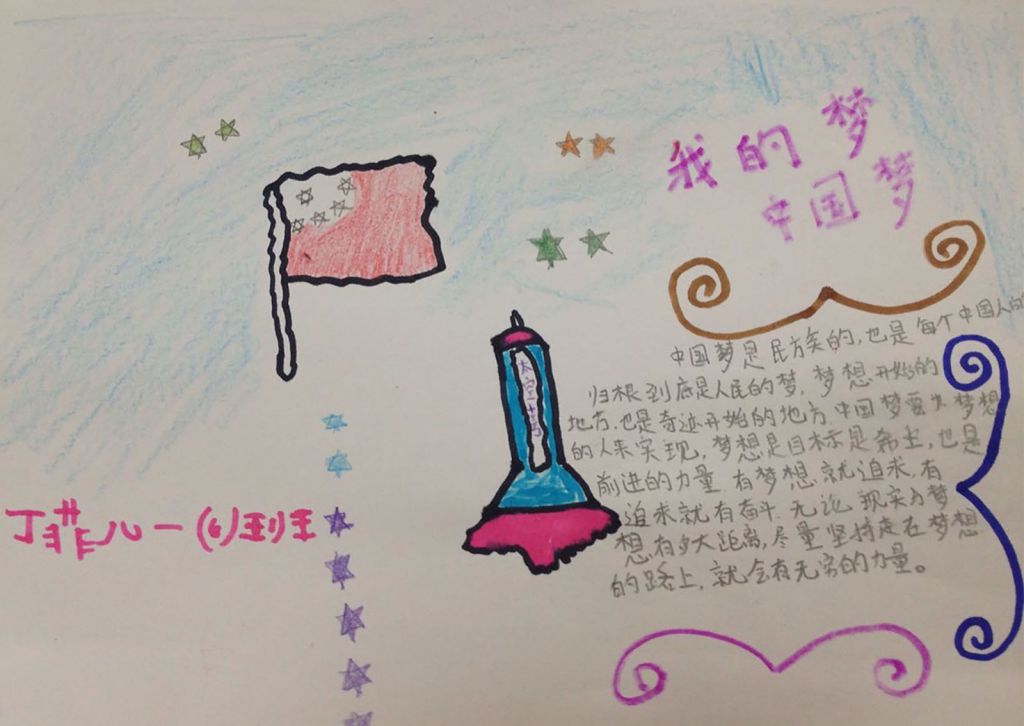 我的梦
中国梦
中国梦是民族的,也是每个中国人的
归根到底是人民的梫,梦想开始的
地方,也是奇迹开始的地方,中国梦要为梦想
的人来实现,梦想是目标是希望,也是
前进的力量 有梦想,就追求,有
追求就有奋斗.无论 现实与梦
想有多大距离,尽量坚持走在梦想
的路上,就会有无穷的力量。
太空十号
丁菲儿一(6)班